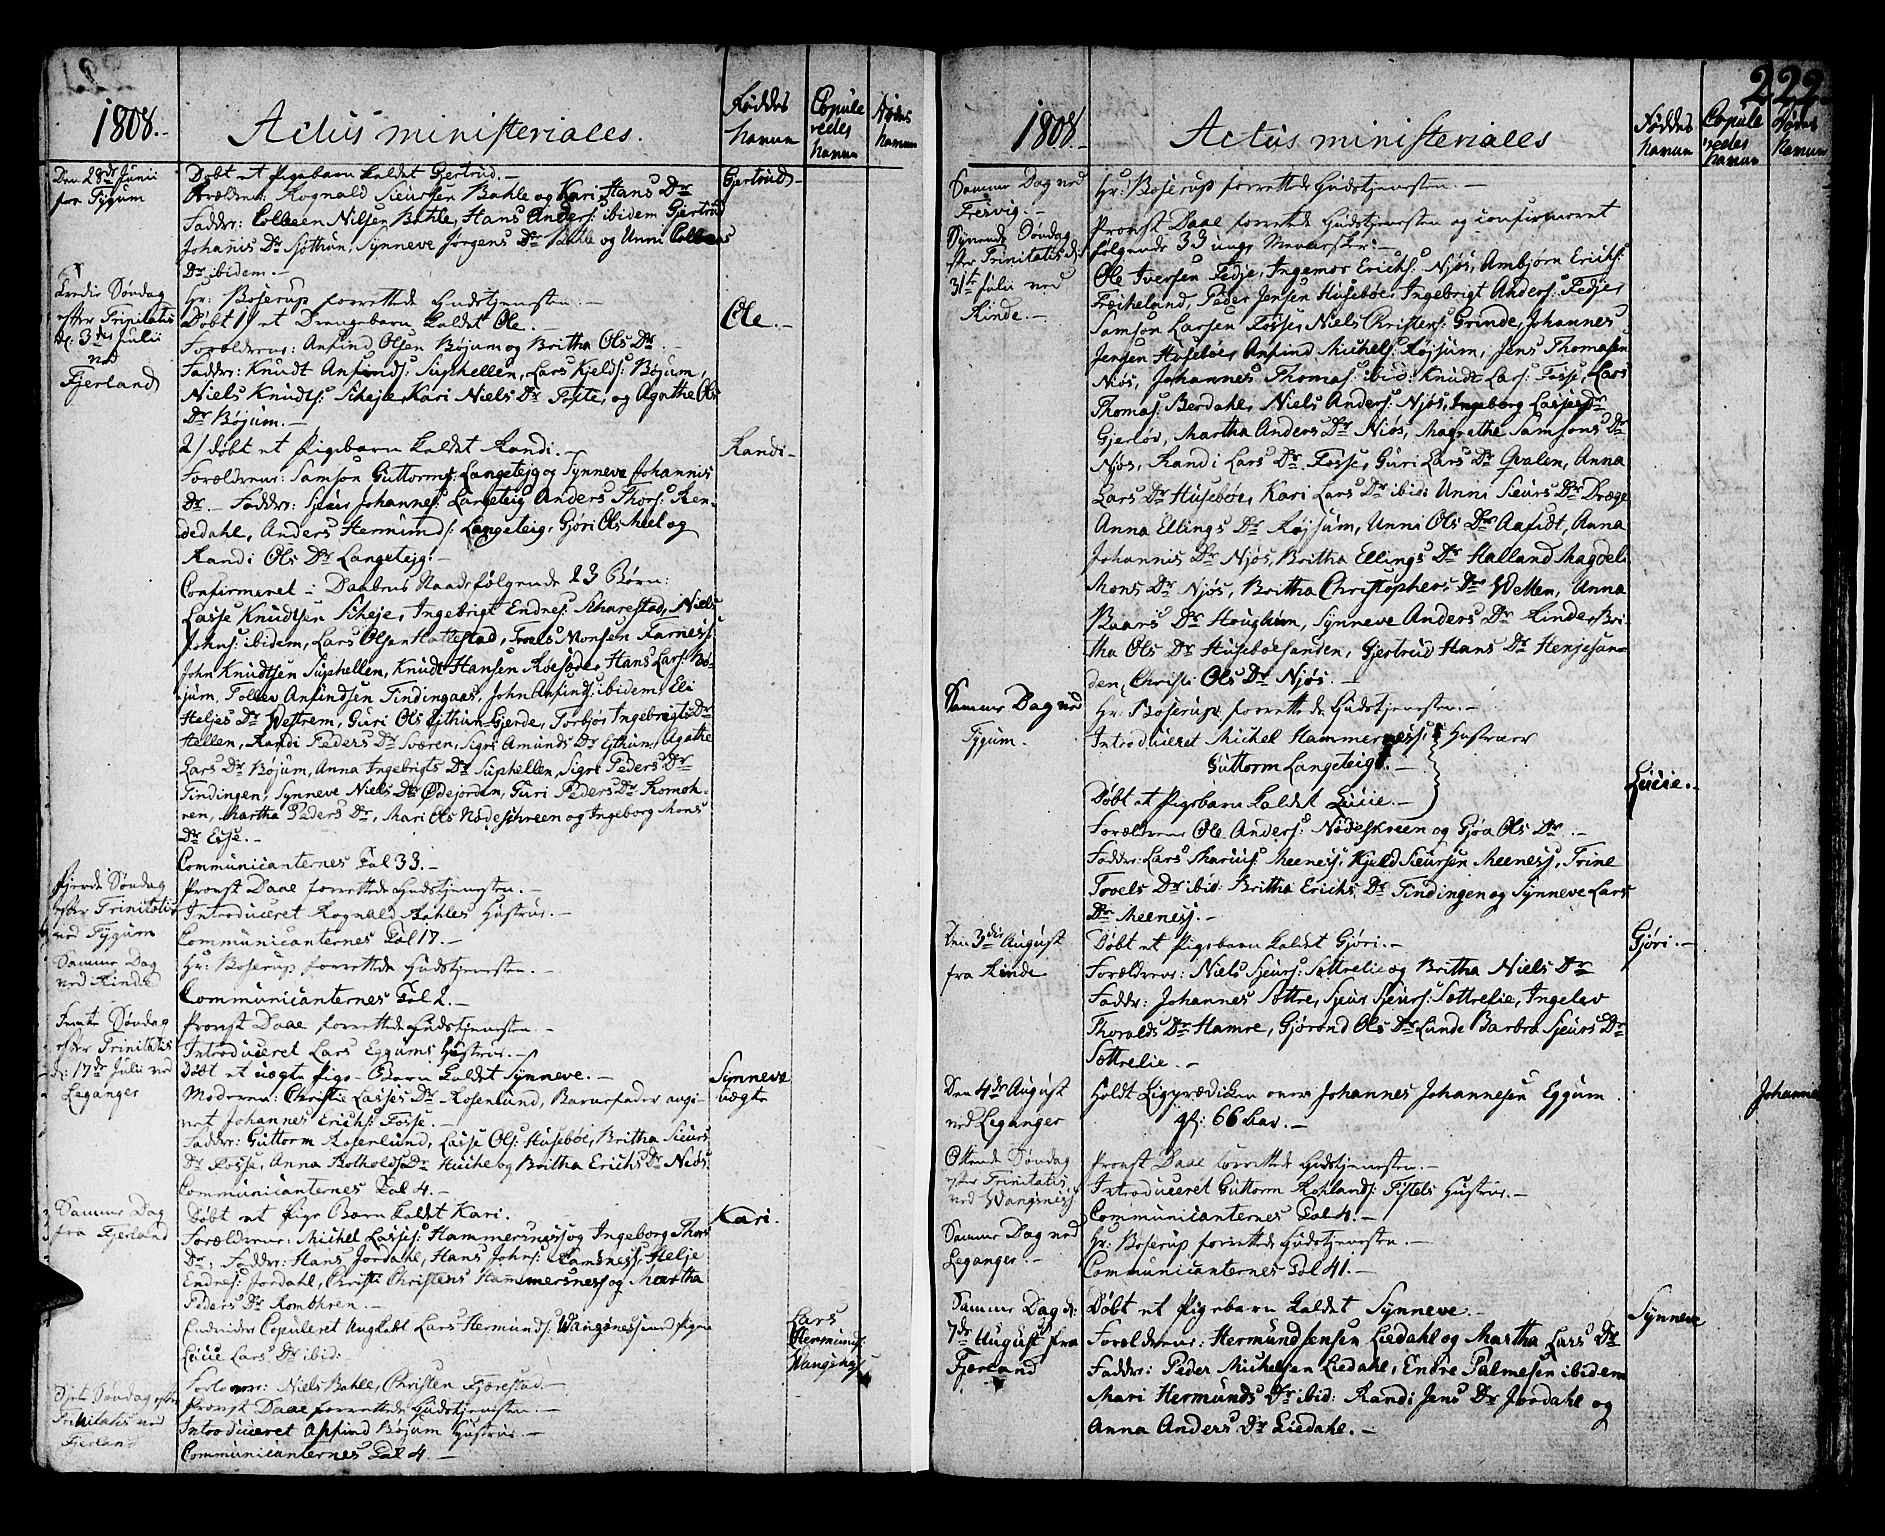 1808.
Actus ministeriales.
Føddes
Navne
Copule
redes
Navne
Dødes
Navne
Den 28de Junii
fra Tygum
Døbt et Pigebarn kaldet Gjertrud.
Gjertrud
Forældrene: Rognald Sieursen Bahle og Kari Hans Dr
Faddr: Colbeen Nilsen Bahle, Hans Anders: ibidem Gjertrud
Johanis Dr Søthun, Synneve Jørgens Dr Bahle og Unni Colbeens
Dr ibidem.
Tredie Søndag
efter Trinitatis
d: 3die Julii
ved
Fjerland
Hr: Boserup forrettede Gudstjenesten.
Døbt 1/ et Drengebarn kaldet Ole.
Ole.
Forældrene: Anfind Olsen Bøjum og Britha Ols Dr.
Faddr: Knudt Anfinds: Suphellen, Lars Kjelds: Bøjum,
Niels Knudts: Scheje, Kari Niels Dr Toste, og Agathe Ols
Dr Bøjum.
2/ døbt et Pigebarn kaldet Randi.
Randi
Forældrene: Samson Guttorms: Langeteig og Synneve Johannis
Dr. Faddr: Sjeur Johannes: Langeteig Anders Thors: Ren-
dedahl, Anders Hermunds: Langeteig, Gjøri Ols Meel og
Randi Ols Dr Langeteig.
Confirmeret i Daabens Naade følgende 23 Børn:
Lasse Knudtsen Scheje, Ingebrigt Endres: Scharestad, Niels
Johns: ibidem, Lars Olsen Hattestad, Troels Monsen Farness:
John Knudtsen Suphellen, Knudt Hansen Roesøde, Hans Lars: Bø-
jum, Tollev Anfindsen Tindingaas, John Anfinds: ibidem, Eli
Heljes Dr Westrem, Guri Ols Eithun-Gjerde, Torbjør Ingebrigts Dr
Hellen, Randi Peders Dr Sværen, Sigri Amunds Dr Ejthum, Agathe
Lars Dr Bøjum, Anna Ingebrigts Dr Suphellen, Sigri Peders Dr
Tindingen, Synneve Niels Dr Ødejorden, Guri Peders Dr Romoh-
ren, Martha Peders Dr, Mari Ols Nødeschreen og Ingeborg Mons
Dr Esse.
Communicanternes Tal 33.
Fjerde Søndag
efter Trinitatis
ved Tygum
Provst Daae forrettede Gudstjenesten.
Introduceret Rognald Bahles Hustrue.
Communicanternes Tal 17.
Samme Dag
ved Rinde
Hr: Boserup forrettede Gudstjenesten.
Communicanternes Tal 2.
Femte Søndag
efter Trinitatis
d: 17de Julii ved
Leganger
Provst Daae forrettede Gudstjenesten.
Introduceret Lars Eggums Hustrue.
Døbt et uægte Pige-Barn kaldet Synneve.
Synneve
uægte
Moderen: Christie Lasses Dr Rosenlund, Barnefader angi-
vet Johannes Erichs: Fosse.
Faddr: Guttorm Rosenlund, Lasse Ols: Husebøe, Britha Sieurs
Dr Fosse, Anna Botholds Dr og Britha Erichs Dr Niøs
Communicanternes Tal 4.
Samme Dag
fra Fjerland
Døbt et Pige Barn kaldet Kari.
Kari.
Forældrene: Michel Lasses: Hammersness og Ingeborg Thors
Dr, Faddr: Hans Jordahl, Hans Johns: Ramsness, Helje
Endres: Jordahl, Christi Christens Hammersness og Martha
Peders Dr Romohren.
Endvidere Copuleret Ungkarl Lars Hermunds: Wangsness med Pigen
Lucie Lars Dr ibid:
Lars
Hermunds:
Wangsness
Forlovere: Niels Bahle, Christen Fjærestad.
Sjete Søndag efter
Trinitatis ved
Fjerland
Provst Daae forrettede Gudstjenesten.
Introduceret Anfind Bøjum Hustrue.
Communicanternes Tal 4.
222
1808.
Actus ministeriales
Føddes
Navne
Copule
redes
Navne
Dødes
Navne
Samme Dag ved
Fresvig.
Hr: Boserup forrettede Gudstjenesten.
Syvende Søndag
efter Trinitatis d:
31te Julii ved
Rinde.
Provst Daae forrettede Gudstjenesten og confirmeret
følgende 33 unge Mennesker:
Ole Iversen Fedje, Ingemor Erichs: Njøs, Ambjørn Erichs:
Fræcheland, Peder Jensen Husebøe, Ingebrigt Anders: Fedje,
Samson Larsen Fosse, Niels Christens: Grinde, Johannes
Jensen Husebøe, Anfind Michels: Røjsum, Jens Thomasen
Niøs, Johannes Thomas: ibid: Knudt Lars: Fosse, Lars
Thomas: Berdahl, Niels Anders: Njøs, Ingeborg Lasses Dr
Gjerløv, Martha Anders Dr Niøs, Magrethe Samsons Dr
Njøs, Randi Lars Dr Fosse, Guri Lars Dr Qvalen, Anna
Lars Dr Husebøe, Kari Lars Dr ibid: Unni Sieurs Dr Dræge
Anna Ellings Dr Røjsum, Unni Ols Dr Aafædt, Anna
Johannis Dr Njøs, Britha Ellings Dr Halland, Magdeli
Mons Dr Njøs, Britha Christophers Dr Wetten, Anna
Baars Dr Houghum, Synneve Anders Dr Rinde, Bri-
tha Ols Dr Husebøesanden, Gjertrud Hans Dr Henjesan-
den, Christi Ols Dr Njøs.
Samme Dag ved
Tygum.
Hr: Boserup forrettede Gudstjenesten.
Introduceret Michel Hammerness: Hustruer
Guttorm Langeteigs.
Døbt et Pigebarn kaldet Lucie.
Lucie.
Forældrene Ole Anders: Nødeskreen og Gjøa Ols Dr.
Faddr: Lars Meeness: Kjeld Sieursen Meeness, Trine
Tovels Dr ibid: Britha Erichs Dr Tindingen og Synneve Lars
Dr Meeness.
Den 3die August
fra Rinde
Døbt et Pigebarn kaldet Gjøri.
Gjøri.
Forældrene: Niels Sjeurs: Sottrelie og Britha Niels Dr
Faddr: Johannes Sottre, Sjeur Sjeurs: Sottrelie, Ingelev
Thoralds Dr Hamre, Gjørond Ols Dr Lunde Barbra Sjeurs Dr
Sottrelie.
Den 4de August
ved Leganger
Holdt Ligprædiken over Johannes Johannesen Eggum
gl: 66 Aar.
Johannes
Ottende Søndag
efter Trinitatis
ved Wangsness
Provst Daae forrettede Gudstjenesten.
Introduceret Guttorm Rohlands: Tistels Hustrue.
Communicanternes Tal 4.
Samme Dag ved
Leganger.
Hr: Boserup forrettede Gudstjenesten.
Communicanternes Tal 41.
Samme Dag d:
7de August fra
Fjærland
Døbt et Pigebarn kaldet Synneve.
Synneve
Forældrene: Hermund Jensen Liedahl og Martha Lars Dr
Faddr: Peder Michelsen Liedahl, Endre Palmesen ibidem
Mari Hermunds Dr ibid: Randi Jens Dr Jordahl og
Anna Anders Dr Liedahl.